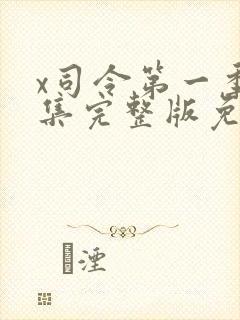 x司令第一季
集完整版免
湮